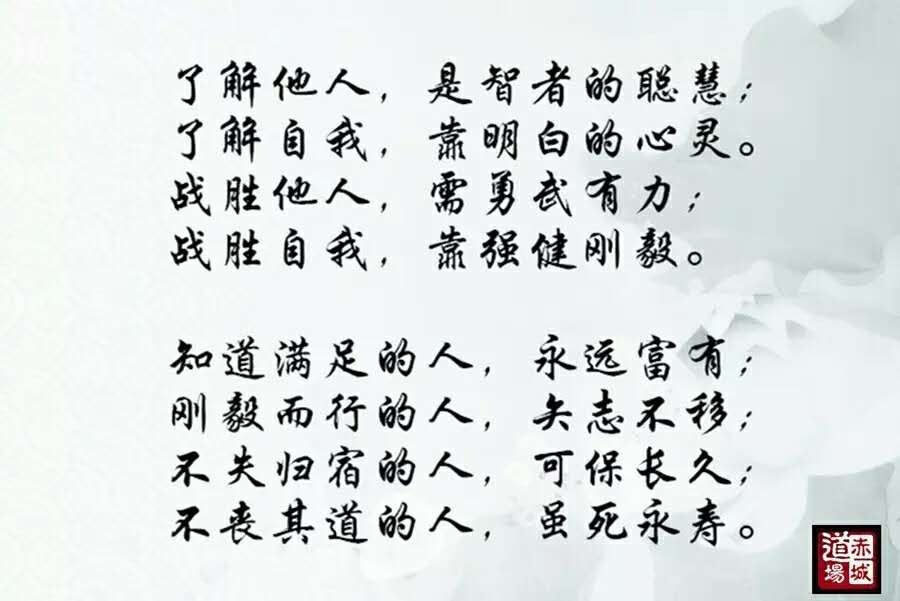 了解他人，是智者的聪慧；
了解自我，靠明白的心灵。
战胜他人，需勇武有力；
战胜自我，靠强健刚毅。
知道满足的人，永远富有；
刚毅而行的人，矢志不移；
不失归宿的人，可保长久；
不丧其道的人，虽死永寿。
赤城
道場